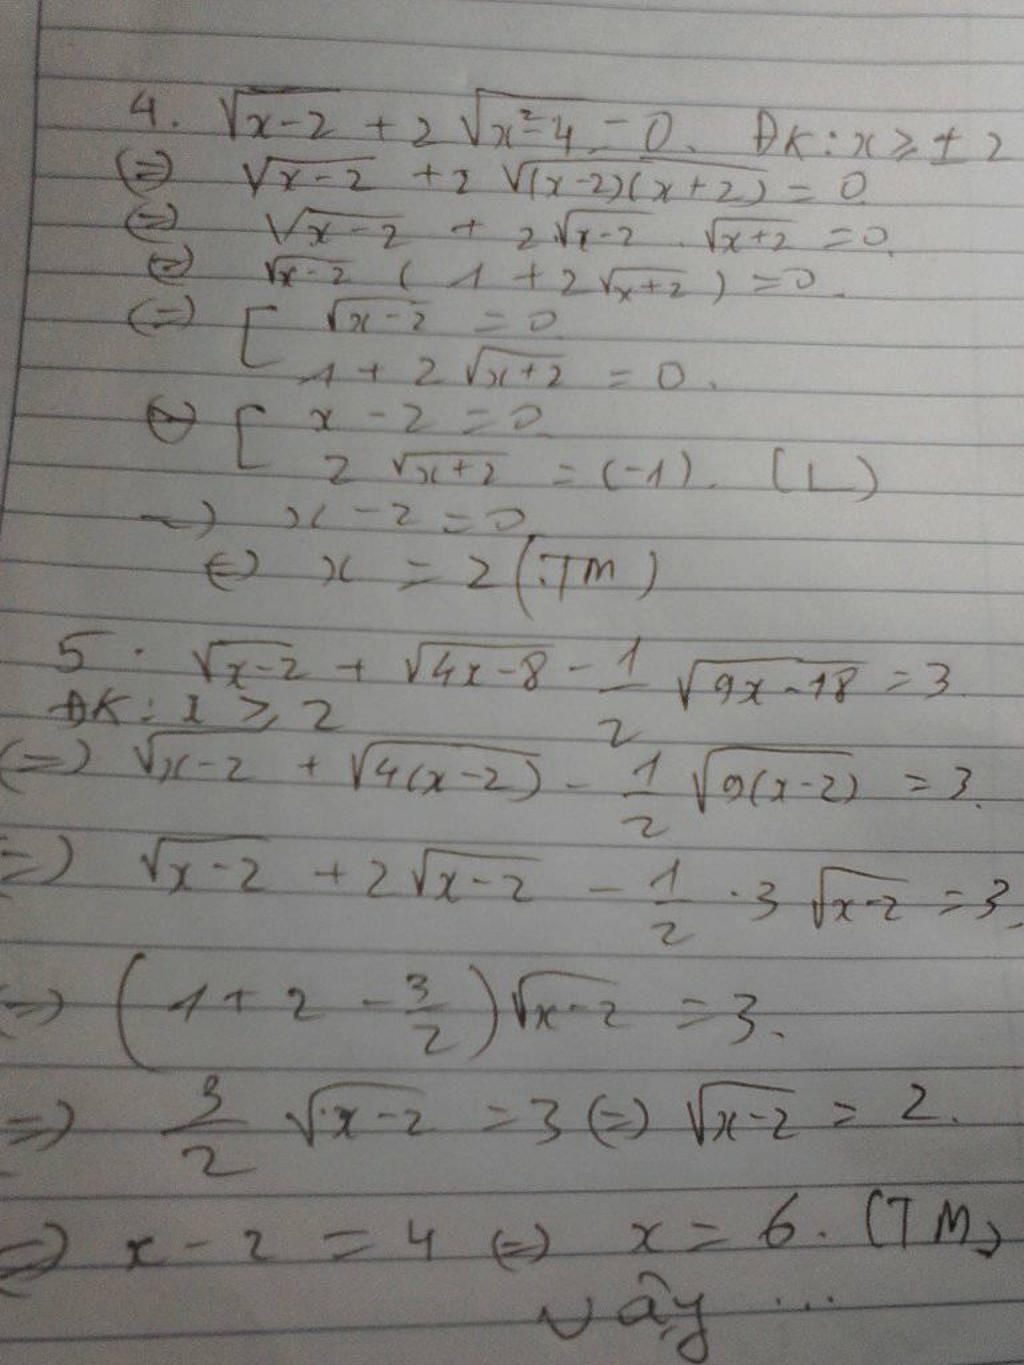 4. √(x-2) + 2√(x²-4) = 0. ĐK: x ≥ ± 2
(=) √(x-2) + 2√((x-2)(x+2)) = 0
(=) √(x-2) + 2√(x-2) . √(x+2) = 0.
(=) √(x-2) ( 1 + 2√(x+2) ) = 0.
(=) [ √(x-2) = 0
1 + 2√(x+2) = 0.
(=) [ x - 2 = 0
2√(x+2) = (-1). (L)
=) x - 2 = 0
(=) x = 2 (TM)
5. √(x-2) + √(4x-8) - 1/2 √(9x-18) = 3
ĐK: x ≥ 2
(=) √(x-2) + √(4(x-2)) - 1/2 √(9(x-2)) = 3.
=) √(x-2) + 2√(x-2) - 1/2 . 3√(x-2) = 3.
=) (1 + 2 - 3/2)√(x-2) = 3.
=) 3/2 √(x-2) = 3 (=) √(x-2) = 2.
=) x - 2 = 4 (=) x = 6. (TM)
Vậy ...